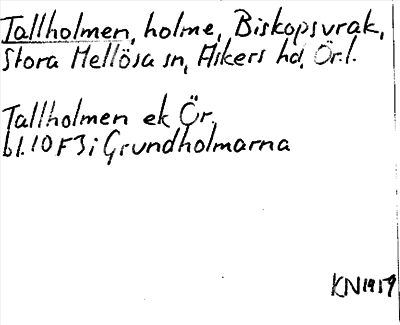 Tallholmen, holme, Biskopsvrak,
Stora Mellösa sn, Askers hd, Ör.l.
Tallholmen ek Ör.
bl.10F3i Grundholmarna
KN1959